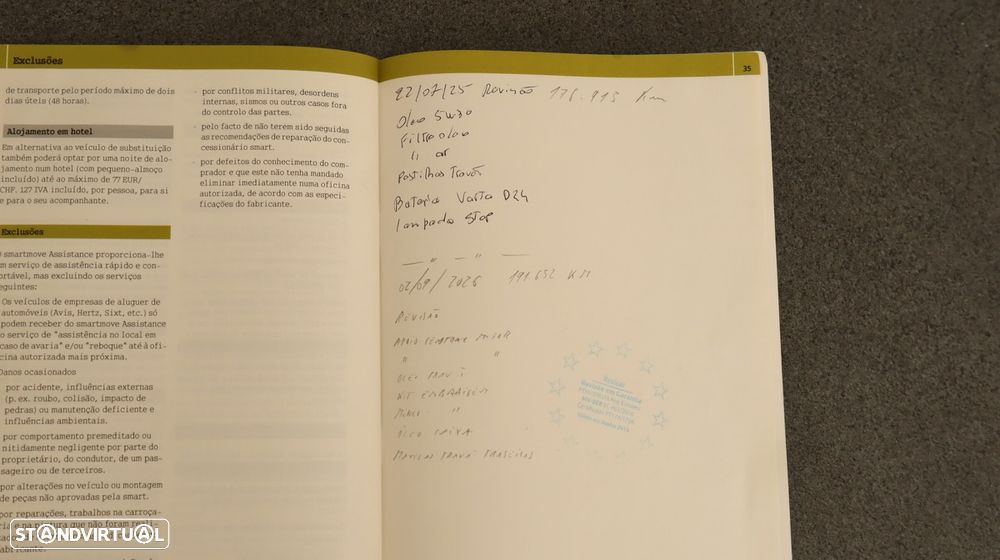 Exclusões
35
de transporte pelo período máximo de dois
dias úteis (48 horas).
Alojamento em hotel
Em alternativa ao veículo de substituição
também poderá optar por uma noite de alo-
jamento num hotel (com pequeno-almoço
incluído) até ao máximo de 77 EUR/
CHF. 127 IVA incluído, por pessoa, para si
e para o seu acompanhante.
Exclusões
smartmove Assistance proporciona-lhe
m serviço de assistência rápido e con-
ortável, mas excluindo os serviços
eguintes:
Os veículos de empresas de aluguer de
automóveis (Avis, Hertz, Sixt, etc.) só
podem receber do smartmove Assistance
o serviço de "assistência no local em
caso de avaria" e/ou "reboque" até à ofi-
cina autorizada mais próxima.
Danos ocasionados
por acidente, influências externas
(p. ex. roubo, colisão, impacto de
pedras) ou manutenção deficiente e
influências ambientais.
por comportamento premeditado ou
nitidamente negligente por parte do
proprietário, do condutor, de um pas-
sageiro ou de terceiros.
por alterações no veículo ou montagem
de peças não aprovadas pela smart.
por reparações, trabalhos na carroça-
ria e na pintura que não foram reali-
- por conflitos militares, desordens
internas, sismos ou outros casos fora
do controlo das partes.
- pelo facto de não terem sido seguidas
as recomendações de reparação do con-
cessionário smart.
- por defeitos do conhecimento do com-
prador e que este não tenha mandado
eliminar imediatamente numa oficina
autorizada, de acordo com as especi-
ficações do fabricante.
22/07/25 Revisão 176.913 Km
Oleo 5w30
Filtro oleo
" ar
Pastilhas Travão
Bateria Varta D24
lampada Stop
— " — " —
02/09/2025 191.632 KM
REVISÃO
APOIO MOTOR
" "
OLEO
KIT EMBRAIAGEM
"
ÓLEO CAIXA
STANDVIRTUAL